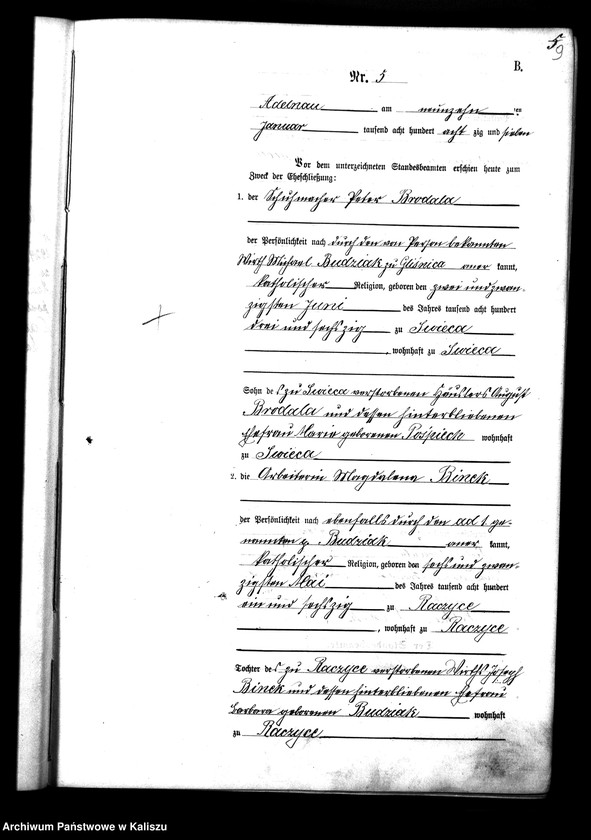 5
9
B.
Nr. 5
Adelnau am neunzehn ten
Januar tausend acht hundert acht zig und sieben
Vor dem unterzeichneten Standesbeamten erschien heute zum
Zweck der Eheschließung:
1. der Schuhmacher Peter Brodala
der Persönlichkeit nach durch den von Person bekannten
Wirth Michael Budziak zu Glisnica aner kannt,
katholischer Religion, geboren den zwei und zwan-
zigsten Juni des Jahres tausend acht hundert
drei und sechszig zu Swieca
, wohnhaft zu Swieca
Sohn des zu Swieca verstorbenen Häuslers August
Brodala und dessen hinterbliebenen
Ehefrau Marie geborenen Pośpiech wohnhaft
zu Swieca
2. die Arbeiterin Magdalena Binek
der Persönlichkeit nach ebenfalls durch den ad 1 ge-
nannten p. Budziak aner kannt,
katholischer Religion, geboren den sechs und zwan-
zigsten Mai des Jahres tausend acht hundert
ein und sechszig zu Raczyce
, wohnhaft zu Raczyce
Tochter des zu Raczyce verstorbenen Wirths Joseph
Binek und dessen hinterbliebenen Ehefrau
Barbara geborenen Budziak wohnhaft
zu Raczyce
Archiwum Państwowe w Kaliszu